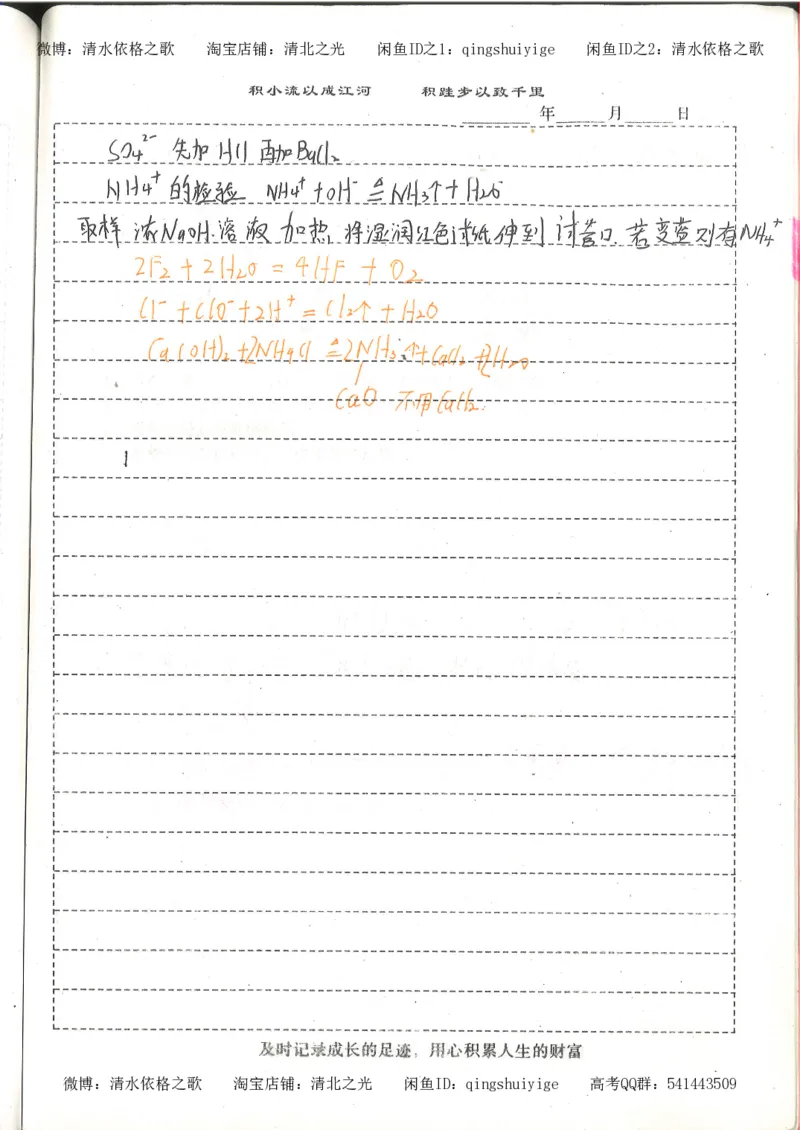 微博：清水依格之歌 淘宝店铺：清北之光 闲鱼ID之1：qingshuiyige 闲鱼ID之2：清水依格之歌
积小流以成江河 积跬步以致千里
年 月 日
SO₄²⁻ 先加 HCl 再加 BaCl₂
NH₄⁺ 的检验 NH₄⁺ + OH⁻ ≜ NH₃↑ + H₂O
取样 浓NaOH 溶液 加热 将湿润红色试纸伸到 试管口 若变蓝则有NH₄⁺
2F₂ + 2H₂O = 4HF + O₂
Cl⁻ + ClO⁻ + 2H⁺ = Cl₂↑ + H₂O
Ca(OH)₂ + 2NH₄Cl ≜ 2NH₃↑ + CaCl₂ + 2H₂O
CaO 不用 CaCl₂.
及时记录成长的足迹，用心积累人生的财富
微博：清水依格之歌 淘宝店铺：清北之光 闲鱼ID：qingshuiyige 高考QQ群：541443509